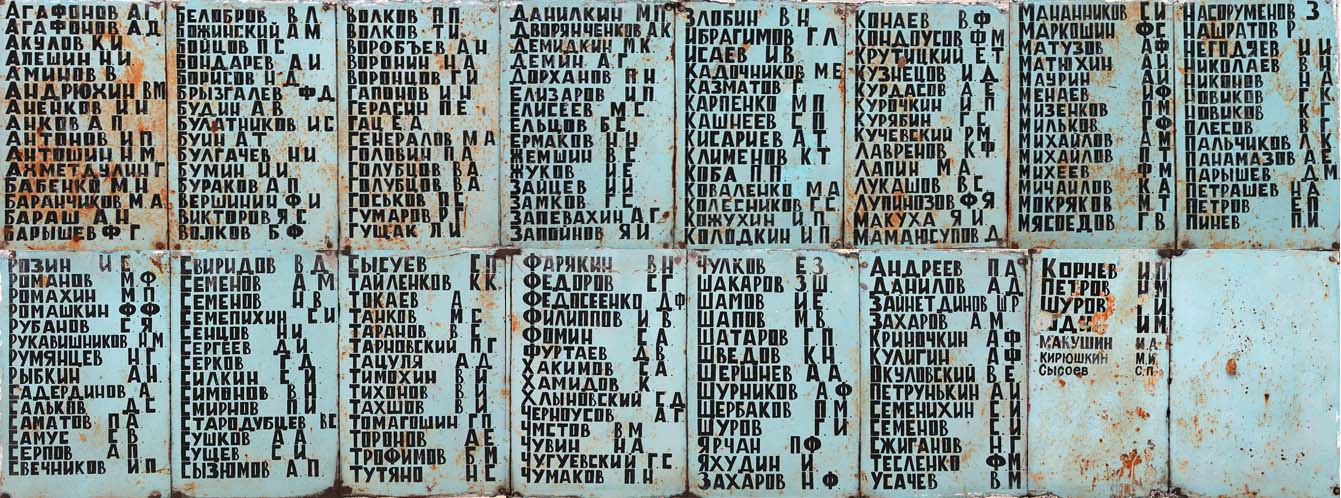 Агафонов А Г
Агафонов А Д
Акулов К И
Алешин Н И
Аминов В
Андрюхин В М
Аненков И И
Анков А П
Антонов И П
Антошин Н М
Ахметдулин Г
Бабенко М Н
Баранчиков М А
Бараш А Н
Барышев Ф Г
Белобров В Л
Божинский А М
Бойцов П С
Бондарев А И
Борисов Н Д
Брызгалев Ф Д
Будин А В
Булатников И С
Буин А Т
Булгачев Н И
Бумин И И
Бураков А П
Вершинин Ф И
Викторов Я С
Волков Б Ф
Волков П П
Волков Т И
Воробъев А Н
Воронин Н А
Воронцов Г И
Гапонов И Н
Герасин П Е
Гац Е А
Генералов М А
Головин А
Голубцов В А
Голубцов В А
Госьков П Е
Гумаров Р Г
Гущак Л И
Данилкин М П
Дворянченков А К
Демидкин М К
Демин А Г
Дорханов П Н
Елизаров И П
Елисеев М С
Ельцов Б С
Ермаков Н И
Жемшин В Е
Жуков И Е
Зайцев И И
Замков Г С
Запевахин А Г
Запойнов Я И
Злобин В Н
Ибрагимов Г Л
Исаев И В
Кадочников М Е
Казматов
Карпенко М П
Кашнеев С П
Кисариев А Т
Клименов К Т
Коба П П
Коваленко М А
Колесников Г С
Кожухин И П
Колодкин И П
Конаев В Ф
Кондоусов Ф М
Крутицкий Е Т
Кузнецов И Д
Курдасов А Е
Курочкин И П
Курябин Г С
Кучевский Р М
Лавренов К Ф
Лапин М А
Лукашов В С
Лупинозов Ф Я
Макуха Я И
Мамаюсупов Д
Мананников С И
Маркошин Ф С
Матузов А Ф
Матюхин А И
Маурин А И
Менаев И Ф
Мизенков П М
Мильков Ф М
Михайлов А П
Михаилов П
Михеев Ф М
Мичаилов К А
Мокряков М Т
Мясоедов Г В
Насоруменов З
Нашратов Р
Негодяев И И
Николаев В Н
Никонов Н А
Новиков Г К
Новиков К Г
Олесов В Г
Пальчиков Л К
Панамазов А Е
Парышев Д М
Петрашев Н А
Петров Е П
Пинев П И
Розин И С
Романов М Ф
Ромахин М П
Ромашкин Ф Ф
Рубанов С Я
Рукавишников Н М
Румянцев Н Г
Рыбкин А Н
Садердинов А
Сальков Д С
Саматов П А
Самус Е В
Серпов А П
Свечников И П
Свиридов В Д
Семенов А М
Семенов Н В
Семепихин С И
Сенцов Н И
Сергеев Д И
Серков Г А
Силкин Е И
Симонов В Н
Смирнов П И
Стародубцев В С
Сушков А А
Сущев С И
Сызюмов А П
Сысуев С П
Тайленков К К
Токаев А
Танков М С
Таранов В Е
Тарновский П Г
Тацуля А Д
Тимохин В И
Тихонов В И
Тахшов В И
Томагошин Г П
Торонов А Е
Трофимов Б М
Тутяно Н С
Фарякин В Н
Федоров С Г
Федосеенко Д Ф
Филиппов И В
Фомин С А
Фуртаев Д В
Хакимов С А
Хамидов К
Хлыновский С Д
Черноусов А Т
Чмстов В М
Чувин Н А
Чугуевский Г С
Чумаков П Н
Чулков Е З
Шакаров З Ш
Шамов И Е
Шапов М В
Шатаров Г П
Шведов К Н
Шершнев А А
Шурников А Ф
Щербаков П М
Шуров Г И
Ярчан П Ф
Яхудин И
Захаров Н Ф
Андреев П А
Данилов А Д
Зайнетдинов Ш Р
Захаров А М
Криночкин А Ф
Кулигин А Ф
Окуловский В Е
Петрунькин А И
Семенихин С И
Семенов Е И
Сжиганов Н Г
Тесленко Ф М
Усачев В М
Корнев И П
Петров И И
Щуров И И
И М
Макушин И.А.
Кирюшкин М.И.
Сысоев С.П.